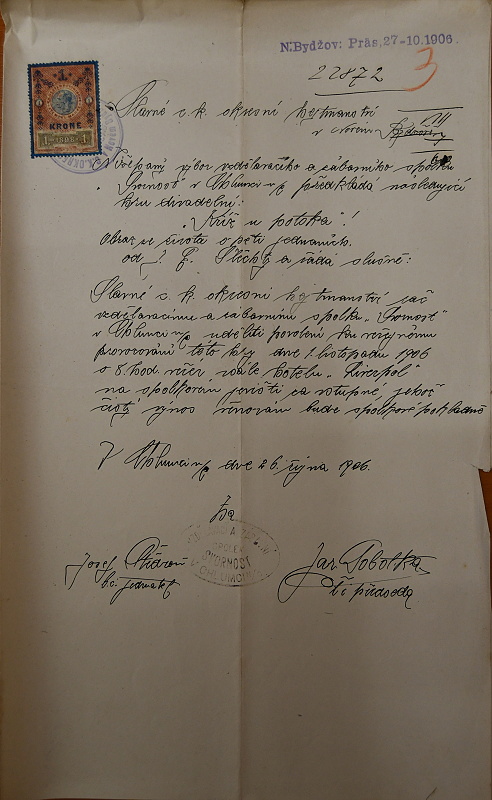 N. Bydžov: Präs. 27-10. 1906.
22872
3
1.
KRONE
1 1898 1
Slavné c. k. okresní hejtmanství
v
výbor vzdělávacího a zábavního spolku
"Svornost" v Chlumci n/c předkládá následující
hru divadelní:
"Kříž u potoka"!
Obraz ze života o pěti jednáních.
od J. F. Šlechty a žádá slušně:
Slavné c. k. okresní hejtmanství rač
vzdělávacímu a zábavnímu spolku "Svornost"
v Chlumci n/c uděliti povolení ku veřejnému
provozování této hry dne 1. listopadu 1906
o 8 hod. večer v sále hotelu
na spolkovém jevišti za vstupné jehož
čistý výnos věnován bude spolkové pokladně
V Chlumci n/c dne 26. října 1906.
Za
SVORNOST
Josef
t. č. jednatel
Jar. Sobotka
t. č. předseda